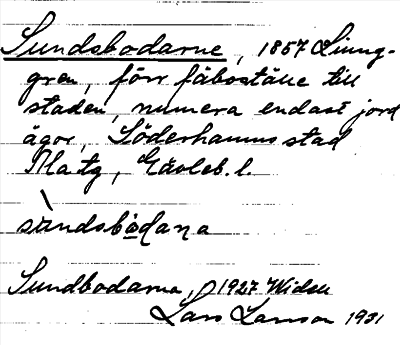 Sundsbodarne, 1857 Ljung-
gren, förr fäboställe till
staden, numera endast jord
ägor, Söderhamns stad
Matg, Gävleb. l.
sundsbòdana
Sundbodarna, 1927 Widén
Lars Larsson 1931